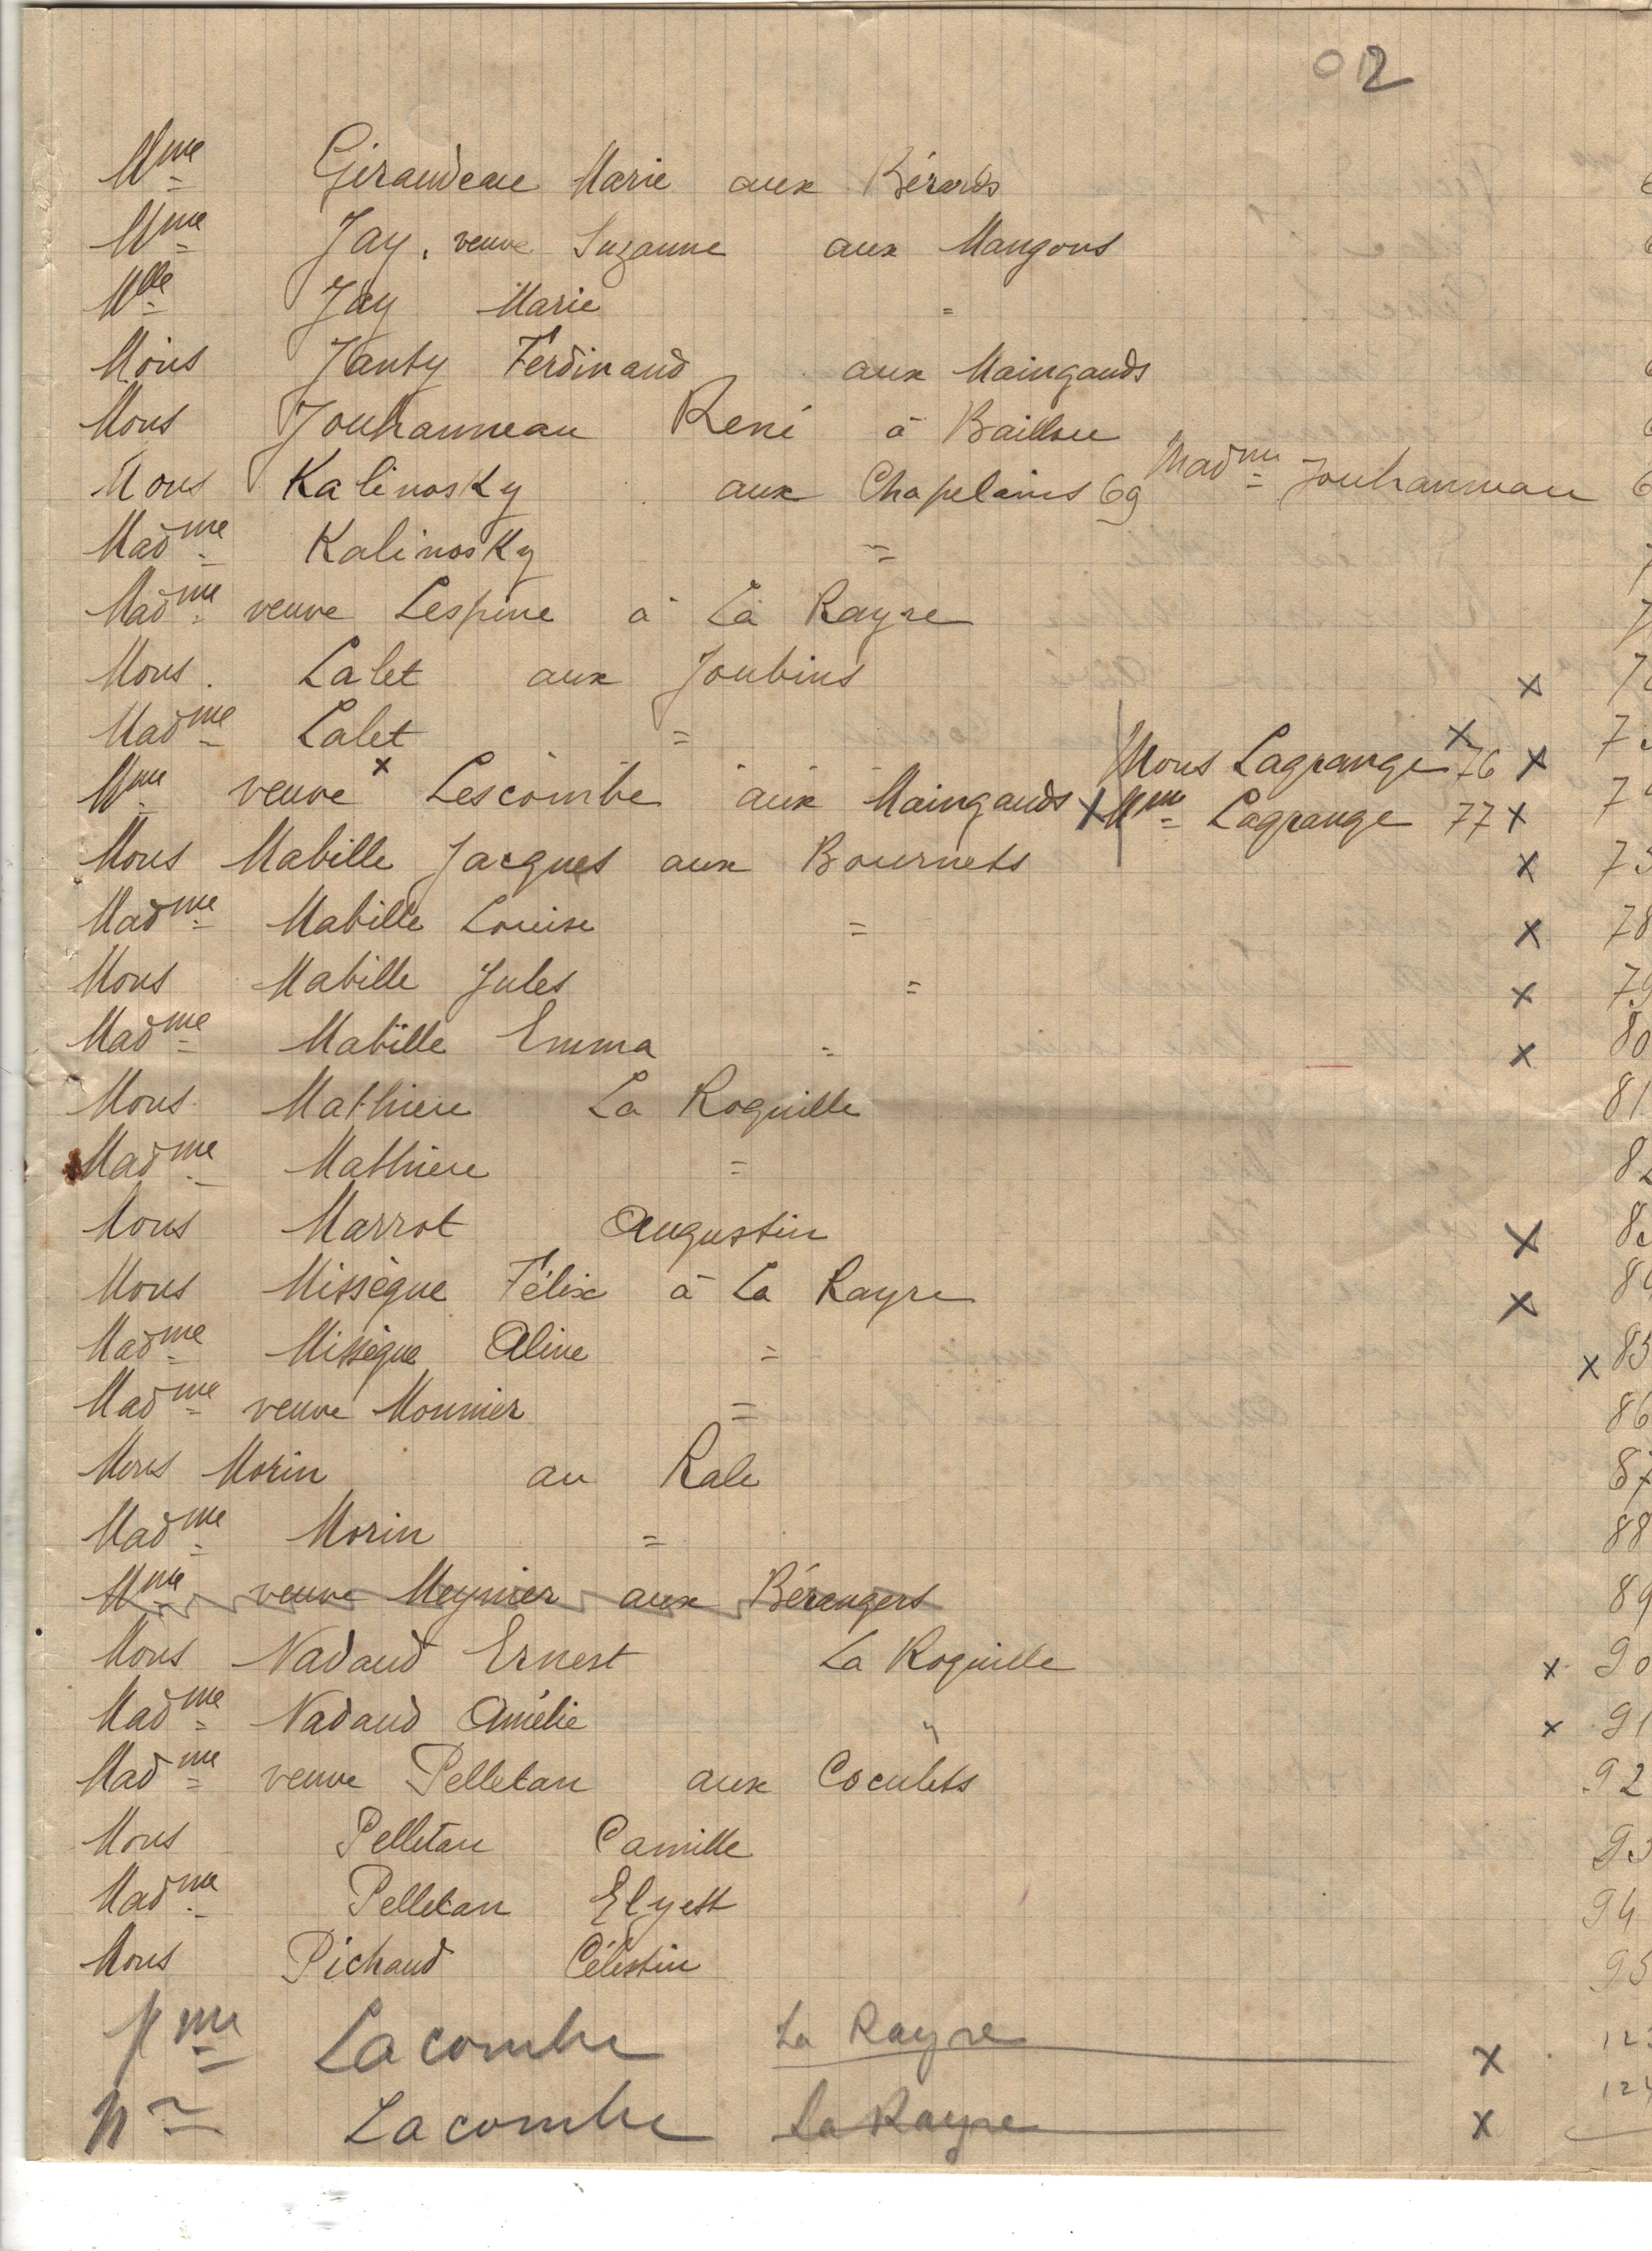 02
Mme Giraudeau Marie aux Bérards
Mme Jay, veuve Suzanne aux Mangons
Mlle Jay Marie =
Mons Janty Ferdinand aux Maingauds
Mons Jouhanneau René à Baillou
Mons Kalinosky aux Chapelains 69 Madme Jouhanneau 6
Madme Kalinosky =
Madme veuve Lespine à La Rayre
Mons. Lalet aux Joubins x
Madme Lalet = x
Mons Lagrange 76 x
Mme veuve x Lescombe aux Maingauds x Mme Lagrange 77 x
Mons Mabille Jacques aux Bournets x
Madme Mabille Louise = x 78
Mons Mabille Jules = x 79
Madme Mabille Emma = x 80
Mons Mathieu La Roquille 81
Madme Mathieu = 82
Mons Marrot Augustin x
Mons Missègue Félix à La Rayre x
Madme Missègue Aline = x 85
Madme veuve Mounier = 86
Mons Morin au Rale 87
Madme Morin = 88
Mme veuve Meynier aux Bérangers 89
Mons Nadaud Ernest La Roquille x 90
Madme Nadaud Amélie " x 91
Madme veuve Pelletan aux Coculets 92
Mons Pelletan Camille 93
Madme Pelletan Elyett 94
Mons Pichaud Célestin 95
Mme Lacombe La Rayre x
Mr Lacombe La Rayre x